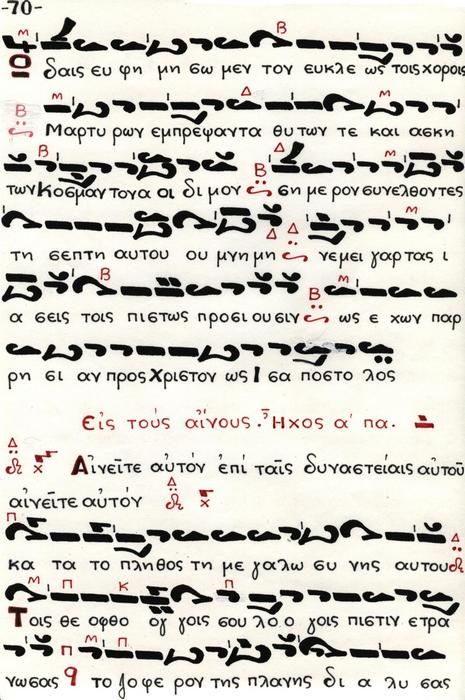 -70-
Ω δαις ευ φη μη σω μεν τον ευκλε ως τοις χοροις
Μαρτυ ρων εμπρεψαντα θυ των τε και ασκη
των Κοσμον τον α οι δι μον ση με ρον συνελθοντες
τη σεπτη αυτου ου μνη μη γεμει γαρ τας ι
α σεις τοις πιστως προσι ου σιν ως ε χων παρ
ρη σι αν προς Χριστον ως Ι σα ποστο λος
Εἰς τούς αἴνους. Ἦχος α' πα.
Αἰνεῖτε αὐτόν ἐπί ταῖς δυναστείαις αὐτοῦ
αἰνεῖτε αὐτόν
κα τα το πληθος τη με γαλω συ νης αυτου
Τοις θε οφθο ογ γοις σου λο ο γοις πιστιν ετρα
νωσας το ζοφε ρον της πλανης δι α λυ σας